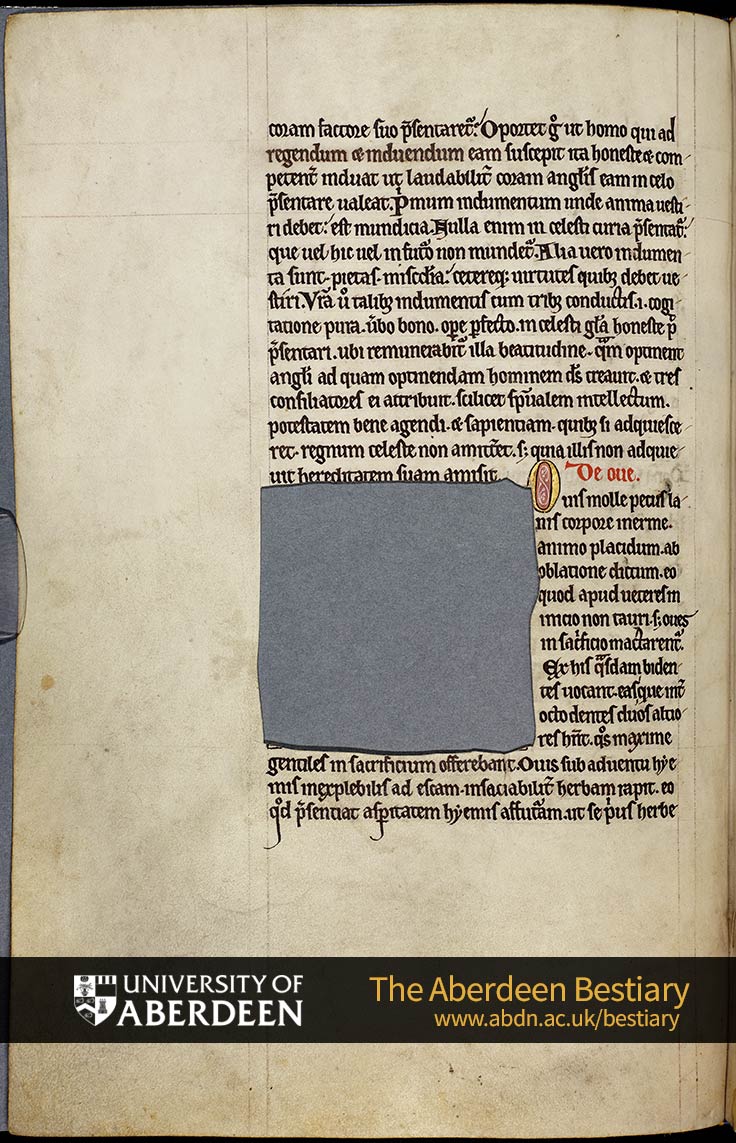 coram factore suo p̄sentaret᷒. Oportet g̊ ut homo qui ad
regendum ⁊ induendum eam suscepit ita honeste ⁊ com
petent̄ induat ut laudabilit̄ coram angl̄is eam in celo
p̄sentare ualeat. P̄mum indumentum unde anima uesti
ri debet: est mundicia. Nulla enim in celesti curia p̄sentat᷒:
que uel hic uel in futo non mundet᷒. Alia uero indumen
ta sunt. pietas. mis̄cdia. ceterеq; uirtutes quib; debet ue
stiri. Vr̄a u̇ talib; indumentis cum trib; conductis .i. cogi
tatione pura. ūbo bono. ope ꝑfecto. in celesti gl̄a honeste p̊
p̄sentari. ubi remunerabit᷒ illa beatitudine. qm̄ optinent
angl̄i ad quam optinendam hominem ds̄ creauit. ⁊ tres
consiliatores ei attribuit. scilicet sp̄ualem intellectum.
potestatem bene agendi. ⁊ sapientiam. quib; si adquiesce
ret. regnum celeste non amitt̄et. s; quia illis non adquie
uit hereditatem suam amisit.
De oue.
Ouis molle pecus la
nis corpore inerme.
animo placidum. ab
oblatione dictum. eo
quod apud ueteres in
inicio non tauri. s; oues
in sac̄ficio mactarent᷒.
Ex his q̄sdam biden
tes uocant. easque int̄
octo dentes duos altio
res hn̄t. q̊s maxime
gentiles in sacrificium offerebant. Ouis sub aduentu hye
mis inexplebilis ad escam. insaciabilit̄ herbam rapit. eo
qd̊ p̄sentiat asꝑitatem hyemis affutāam. ut se p̓us herbe
UNIVERSITY OF
ABERDEEN
The Aberdeen Bestiary
www.abdn.ac.uk/bestiary